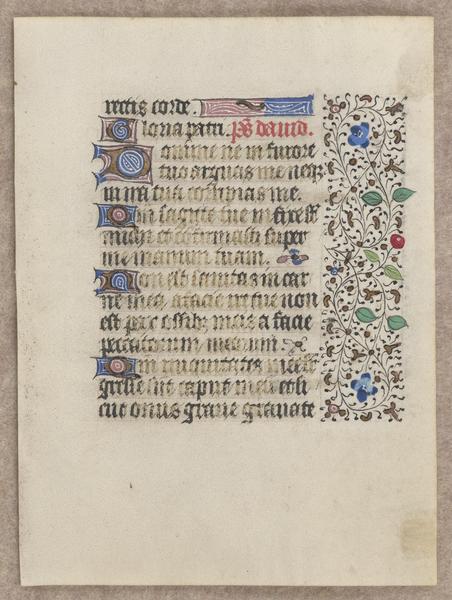 rectis corde.
Gloria patri. ps dauid.
Domine ne in furore
tuo arguas me neqz
in ira tua corripias me.
Qm sagitte tue infixe st
michi et confirmasti super
me manum tuam.
Non est sanitas in car
ne mea a facie ire tue non
est pax ossibz meis a facie
peccatorum meorum
Qm iniquitates mee
gresse sut caput meu et si
cut onus graue grauate